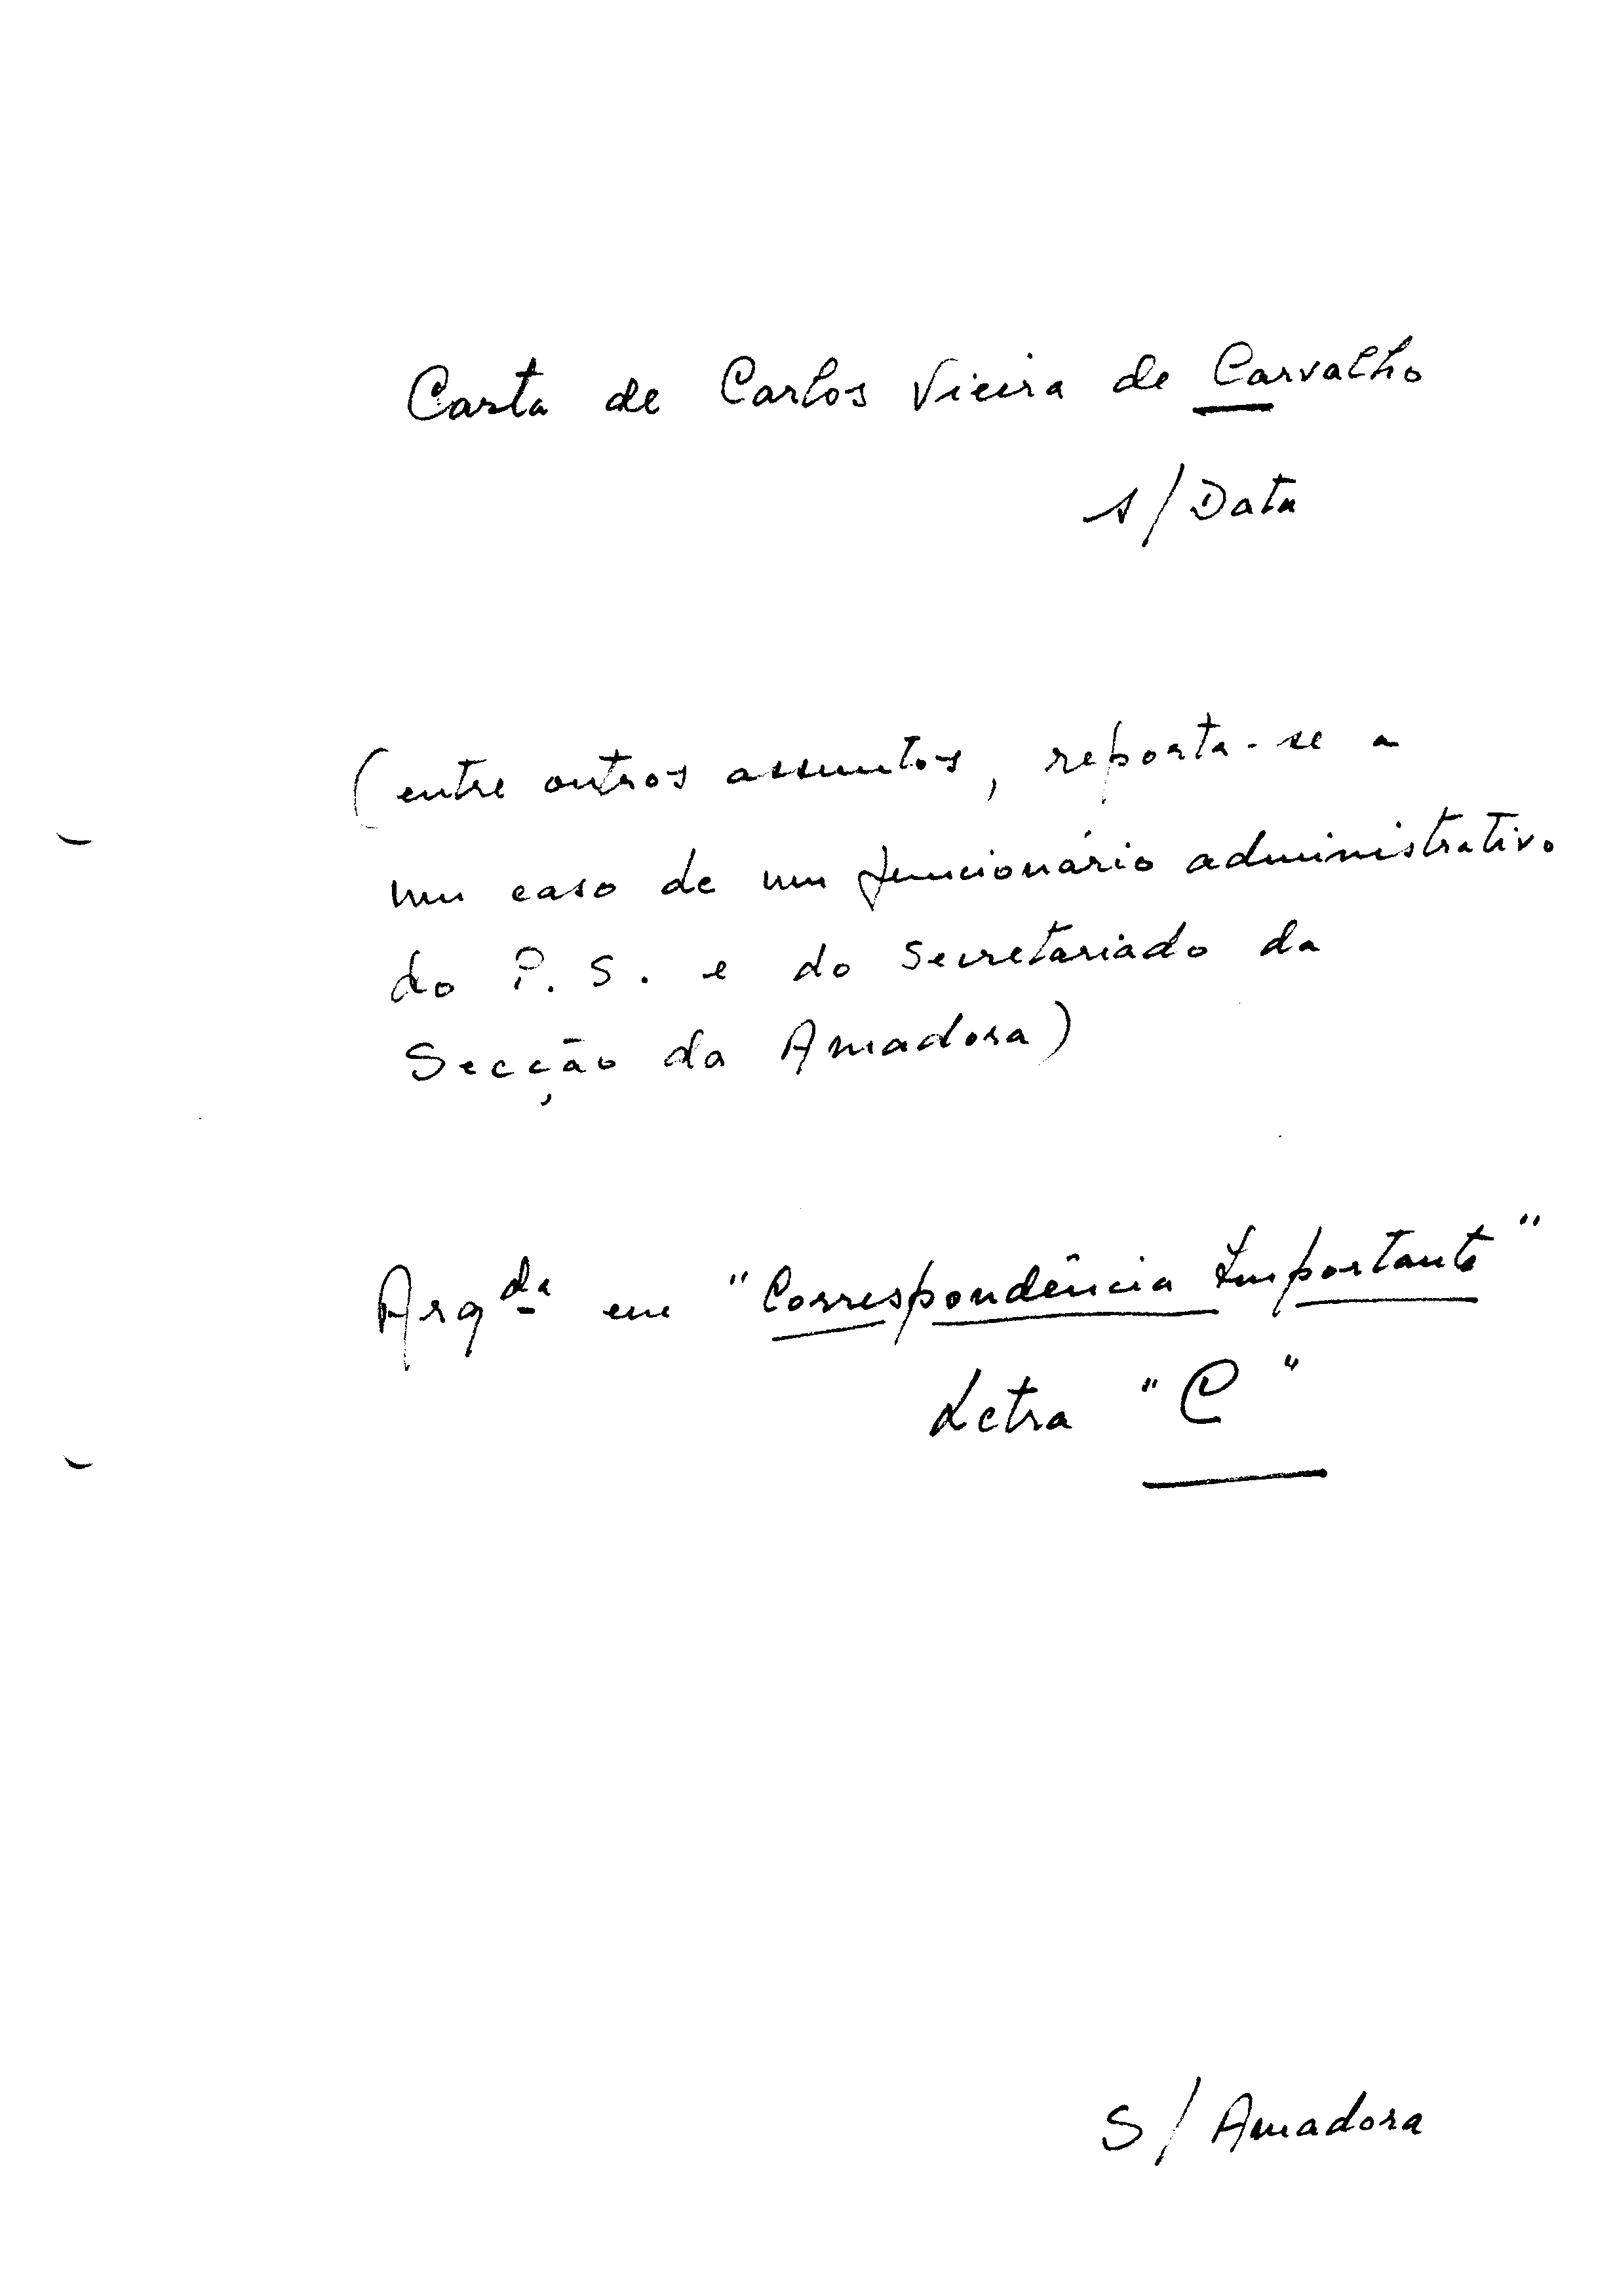 Carta de Carlos Vieira de Carvalho
s/Data
(entre outros assuntos, reporta-se a
um caso de um funcionário administrativo
do P.S. e do Secretariado da
Secção da Amadora)
Arqda em "Correspondência Importante"
Letra "C"
S/Amadora